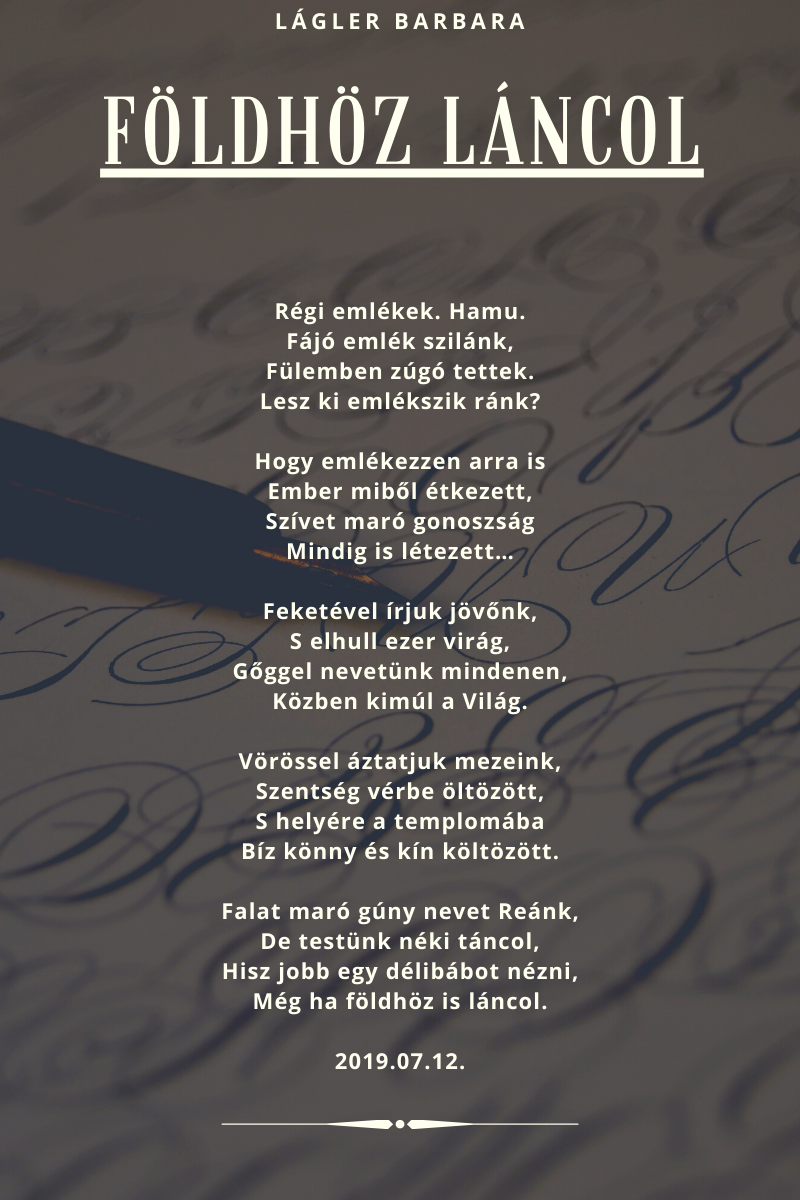 LÁGLER BARBARA
FÖLDHÖZ LÁNCOL
Régi emlékek. Hamu.
Fájó emlék szilánk,
Fülemben zúgó tettek.
Lesz ki emlékszik ránk?
Hogy emlékezzen arra is
Ember miből étkezett,
Szívet maró gonoszság
Mindig is létezett...
Feketével írjuk jövőnk,
S elhull ezer virág,
Gőggel nevetünk mindenen,
Közben kimúl a Világ.
Vörössel áztatjuk mezeink,
Szentség vérbe öltözött,
S helyére a templomába
Bíz könny és kín költözött.
Falat maró gúny nevet Reánk,
De testünk néki táncol,
Hisz jobb egy délibábot nézni,
Még ha földhöz is láncol.
2019.07.12.